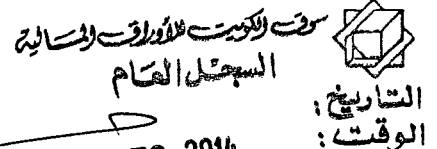 سوق الكويت للأوراق المالية
السجل العام
التاريخ :
الوقت :
2014